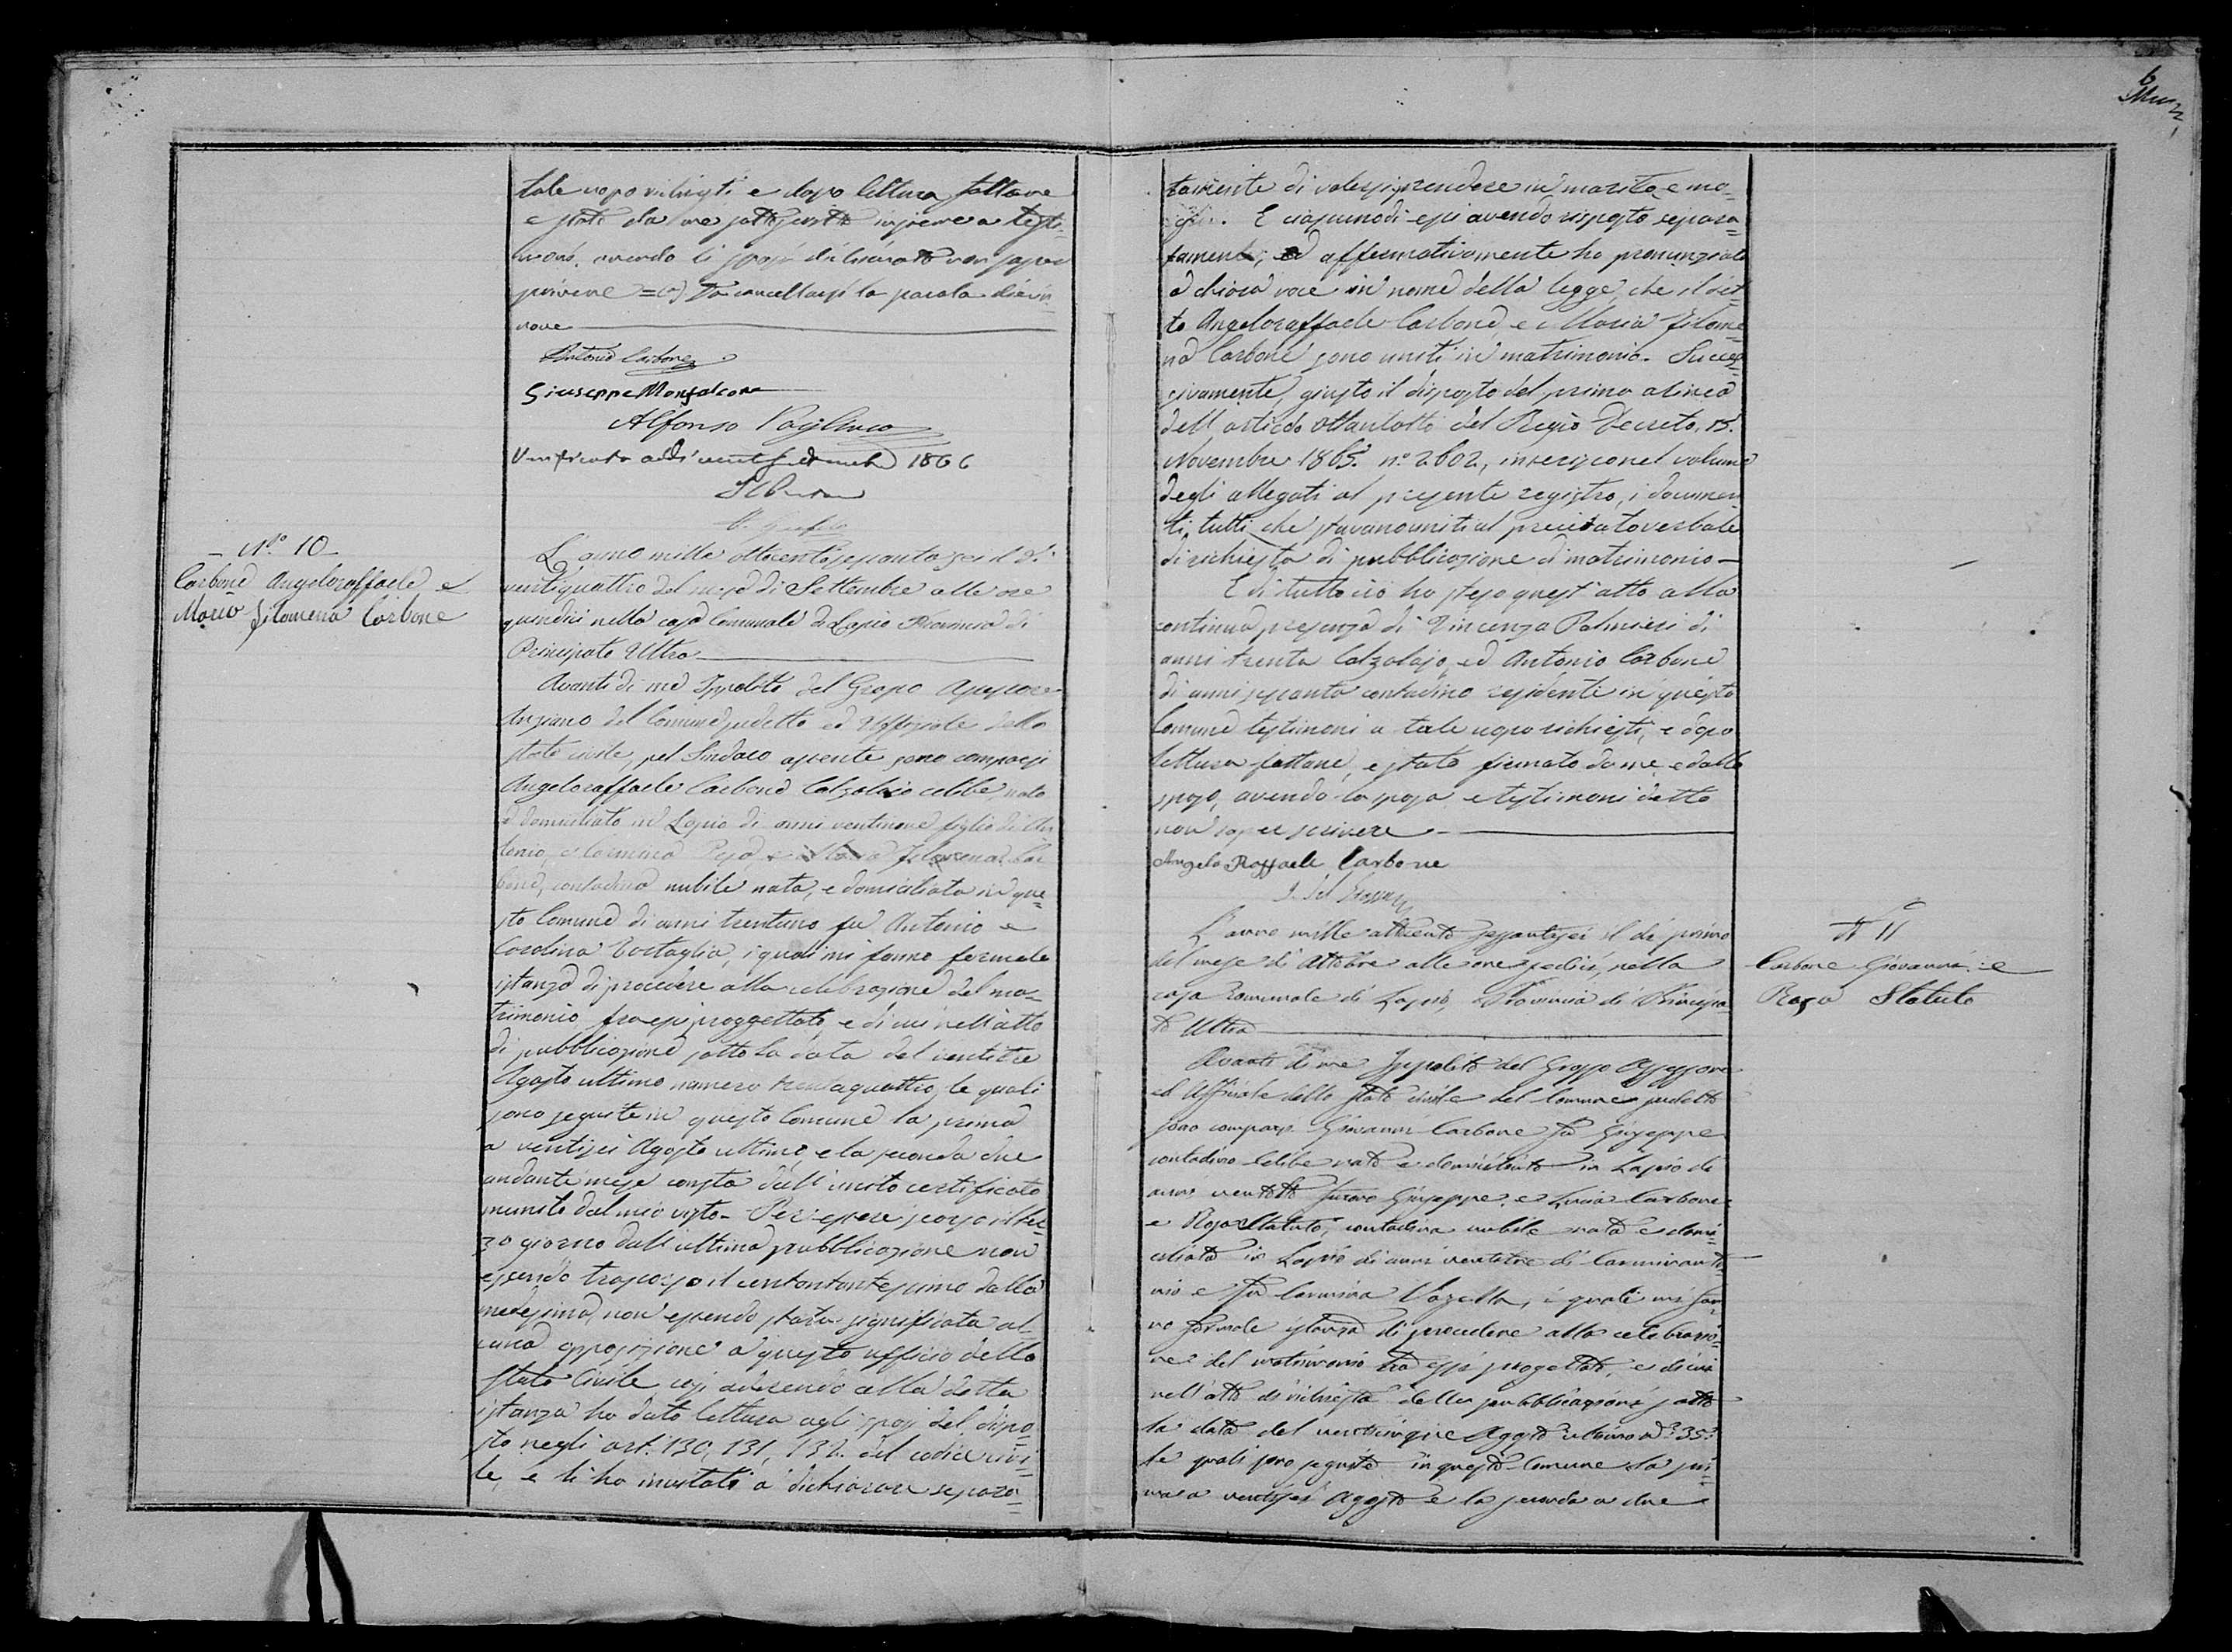 tale uopo richiesti, e dopo lettura fattane
e stato da me sottoscritto insieme a testi-
moni, avendo li sposi dichiarato non saper
scrivere = (a) Da cancellarsi la parola dician
nove
Antonio Carbone
Giuseppe Monfalcone
Alfonso Pagliuca
Verificato addi venti Settembre 1866
- N.o 10 -
Carbone Angeloraffaele e
Maria Filomena Carbone
L'anno mille ottocentosessantasei il dì
ventiquattro del mese di Settembre alle ore
quindici nella casa Comunale di Lapio Provincia di
Principato Ultra
Avanti di me Ippolito del Grosso Assessore
Anziano del Comune sudetto ed Uffiziale dello
stato civile, pel Sindaco assente, sono comparsi
Angeloraffaele Carbone Calzolaio celibe, nato
e domiciliato in Lapio di anni ventinove figlio di An
tonio, e Carmina e Maria Filomena Car
bone, contadina nubile nata, e domiciliata in que=
sto Comune di anni trentuno fu Antonio e
Carolina Tortaglia, i quali mi fanno formale
istanza di procedere alla celebrazione del ma-
trimonio fra essi proggettato, e di cui nell'atto
di pubblicazione sotto la data del ventitre
Agosto ultimo numero trentaquattro, le quali
sono seguite in questo Comune la prima
a ventisei Agosto ultimo, e la seconda due
andante mese consta dall'unito certificato
munito dal mio visto - Per essere scorso il ter
zo giorno dall'ultima pubblicazione non
essendo trascorso il centottantesimo dalla
medesima, non essendo stata significata al-
cuna opposizione a questo ufficio dello
Stato Civile, così aderendo alla detta
istanza ho dato lettura agli sposi del dispo
sto negli art. 130, 131, 132. del codice civi-
le, e li ho invitati a dichiarare separa=
tamente di volersi prendere in marito, e mo-
glie. E ciascuno di essi avendo risposto separa=
tamente, ed affermativamente ho pronunziato
a chiara voce in nome della legge, che il det-
to Angeloraffaele Carbone, e Maria Filome
na Carbone sono uniti in matrimonio. Succes=
sivamente, giusto il disposto del primo alinea
dell'articolo ottantotto del Regio Decreto, 15.
Novembre 1865. n.o 2602, inserisco nel volume
degli allegati al presente registro, i documen
ti, tutti che stavano uniti al precitato verbale
di richiesta di pubblicazione di matrimonio -
E di tutto ciò ho steso quest'atto alla
continua presenza di Vincenzo Palmieri di
anni trenta Calzolajo, ed Antonio Carbone
di anni sessanta contadino residenti in questo
Comune testimoni a tale uopo richiesti, e dopo
lettura fattane, e stato firmato da me, e dallo
sposo, avendo la sposa e testimoni detto
non saper scrivere
Angelo Raffaele Carbone
I. del Grosso
N.o 11
Carbone Giovanni e
Rosa Statuto
L'anno mille ottocento sessantasei il dì primo
del mese di Ottobre alle ore sedici, nella
casa Comunale di Lapio, Provincia di Principa
to Ultra
Avanti di me Ippolito del Grosso Assessore
ed Uffiziale dello stato civile del Comune sudetto
sono comparsi Giovanni Carbone fu Giuseppe
contadino celibe nato e domiciliato in Lapio di
anni ventotto furono Giuseppe, e Lucia Carbone
e Rosa Statuto, contadina nubile nata e domi=
ciliata in Lapio di anni ventitre di Carminanto=
nio e fu Carmina Vozella, i quali mi fan=
no formale istanza di procedere alla celebrazio=
ne del matrimonio tra essi proggettato, e di cui
nell'atto di richiesta delle pubblicazioni sotto
la data del venticinque Agosto ultimo n.o 35.
le quali sono seguite in questo Comune la pri=
ma a ventisei Agosto e la seconda a due